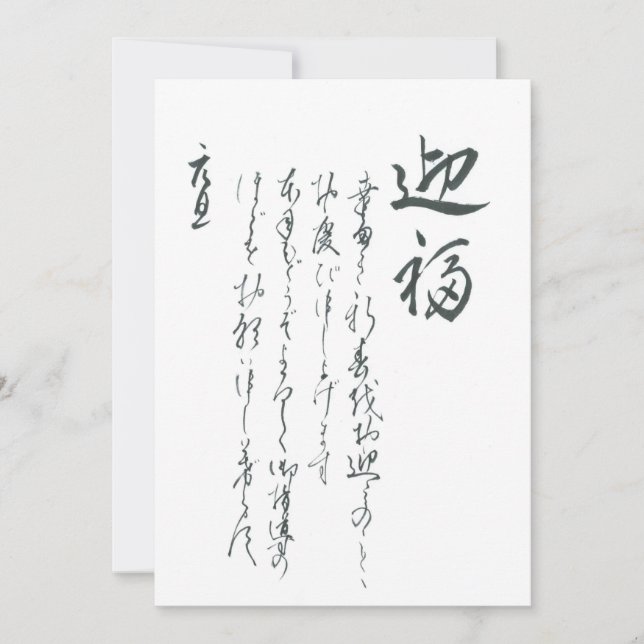 迎福
幸多き新春を御迎えのことゝ
御慶び申し上げます
本年もどうぞよろしく御指導の
ほどを御願い申し
元旦